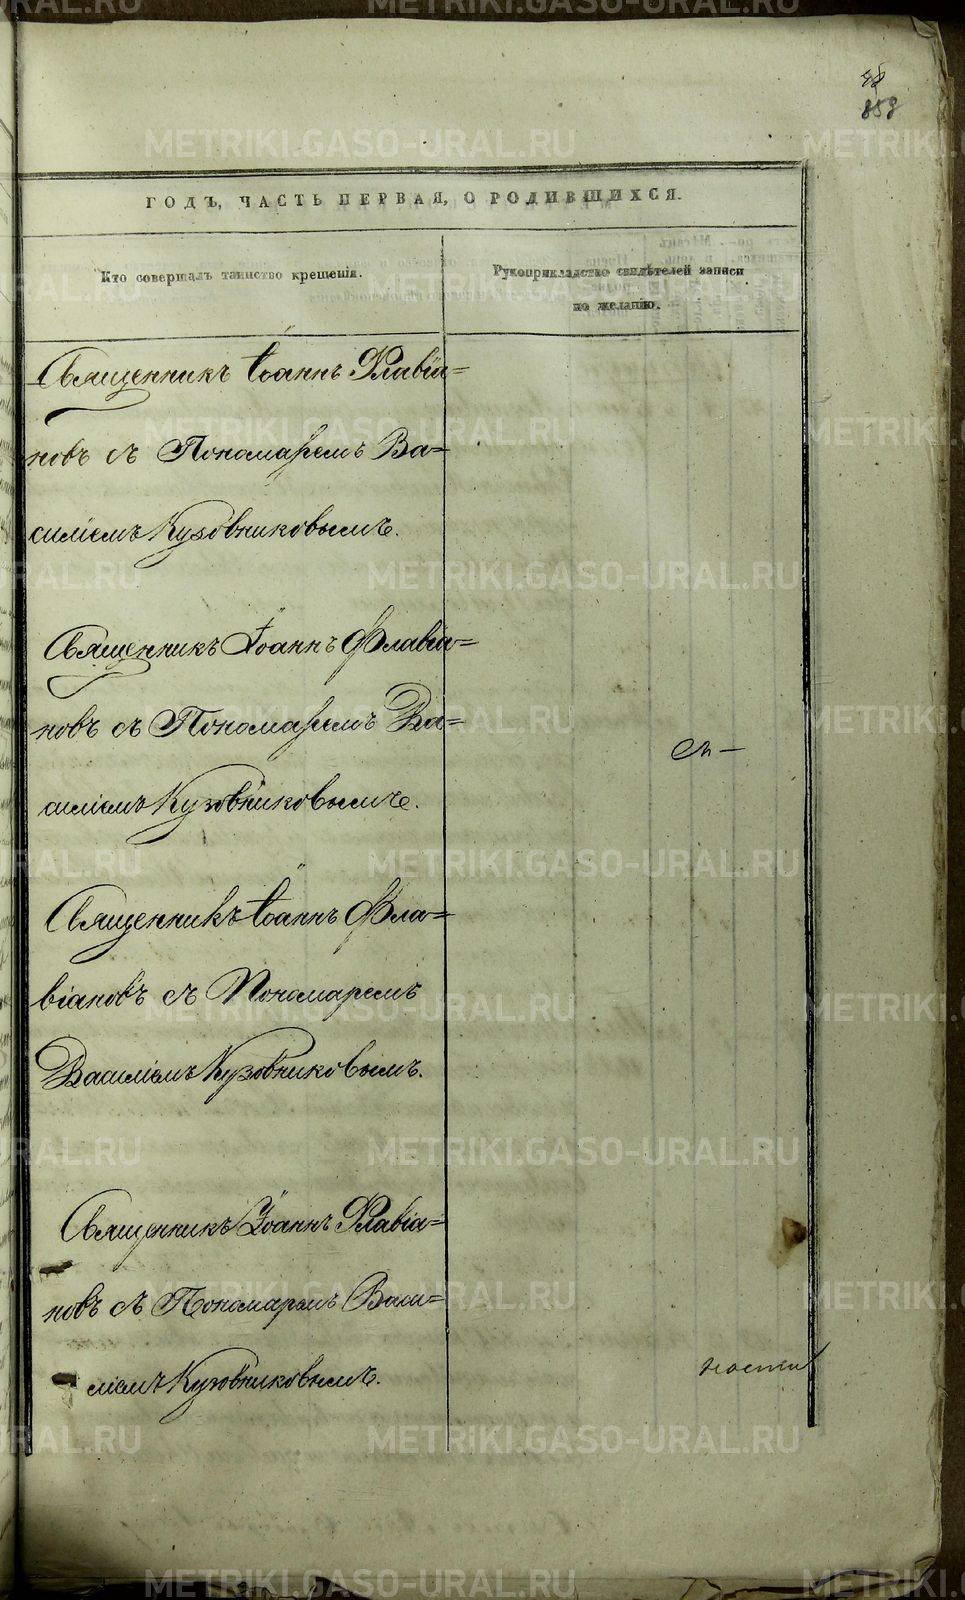 858
ГОДЪ, ЧАСТЬ ПЕРВАЯ, О РОДИВШИХСЯ.
Кто совершалъ таинство крещенія.
Рукоприкладство свидѣтелей записи
по желанію.
Священникъ Іоаннъ Флавіа=
новъ съ Пономаремъ Ва=
силіемъ Кузовниковымъ.
Священникъ Іоаннъ Флавіа=
новъ съ Пономаремъ Ва=
силіемъ Кузовниковымъ.
Священникъ Іоаннъ Фла=
віановъ съ Пономаремъ
Василіемъ Кузовниковымъ.
Священникъ Іоаннъ Флавіа=
новъ съ Пономаремъ Васи=
ліемъ Кузовниковымъ.
METRIKI.GASO-URAL.RU